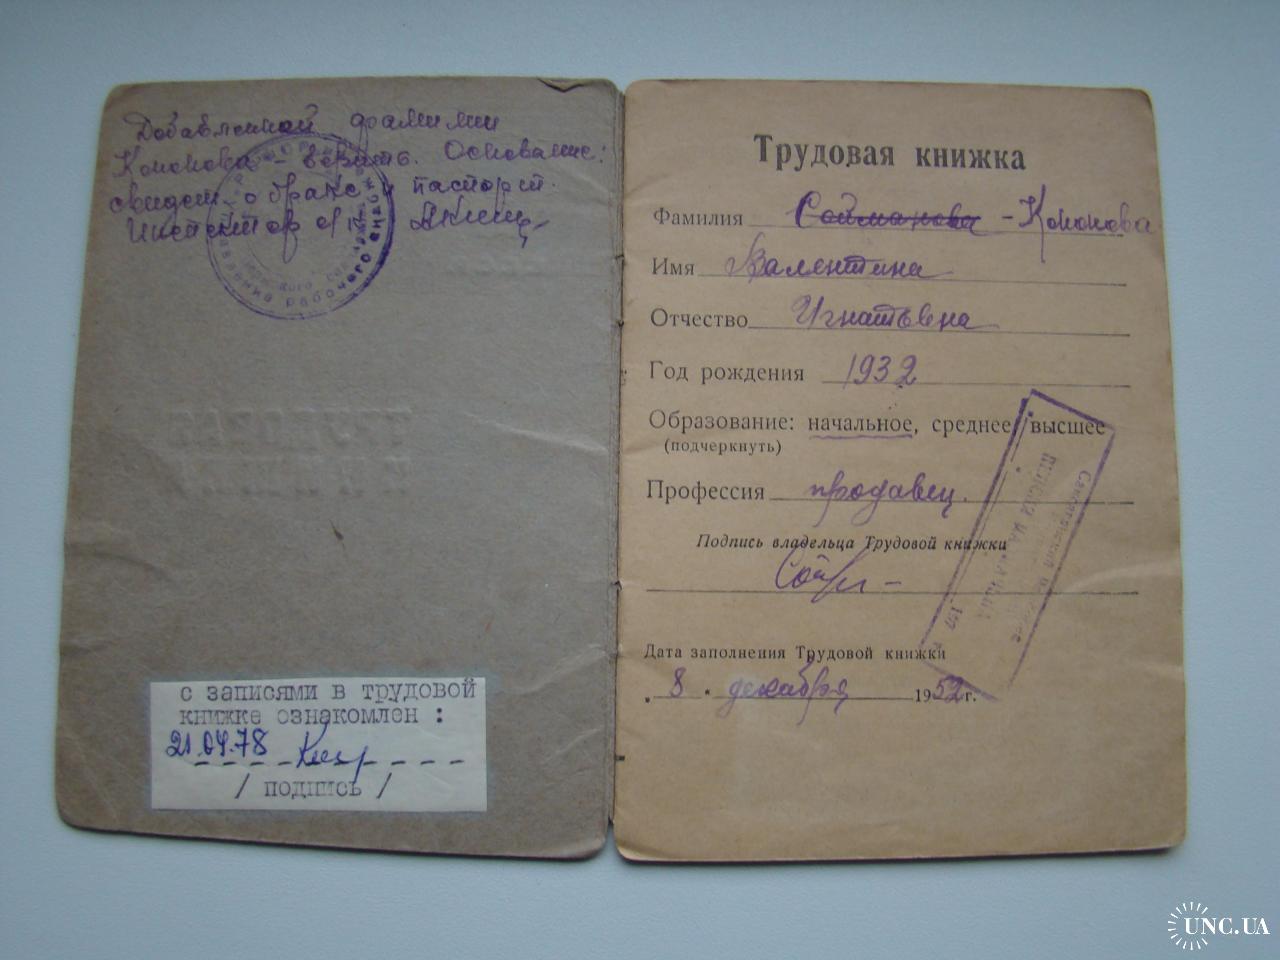 Добавленной фамилии
Кононова - верить. Основание:
свидет. о браке и паспорт.
Инспектор
рабочего
с записями в трудовой
книжке ознакомлен :
21.04.78
/ подпись /
Трудовая книжка
Фамилия Сойманова - Кононова
Имя Валентина
Отчество Игнатьевна
Год рождения 1932
Образование: начальное, среднее, высшее
(подчеркнуть)
Профессия продавец.
Подпись владельца Трудовой книжки
Дата заполнения Трудовой книжки
"8" декабря 1952 г.
UNC.UA